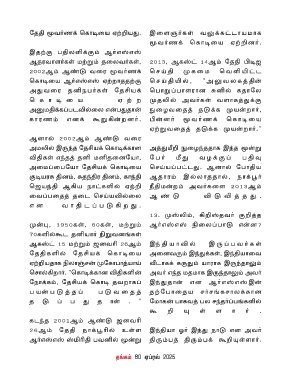 தேதி மூவர்ணக் கொடியை ஏற்றியது.
இதற்கு பதிலளிக்கும் ஆர்எஸ்எஸ்
ஆதரவாளர்கள் மற்றும் தலைவர்கள்,
2002ஆம் ஆண்டு வரை மூவர்ணக்
கொடியை ஆர்எஸ்எஸ் ஏற்றாததற்கு
அதுவரை தனிநபர்கள் தேசியக்
கொடியை ஏற்ற
அனுமதிக்கப்படவில்லை என்பதுதான்
காரணம் எனக் கூறுகின்றனர்.
ஆனால் 2002ஆம் ஆண்டு வரை
அமலில் இருந்த தேசியக் கொடிக்கான
விதிகள் எந்தத் தனி மனிதனையோ,
அமைப்பையோ தேசியக் கொடியை
குடியரசு தினம், சுதந்திர தினம், காந்தி
ஜெயந்தி ஆகிய நாட்களில் ஏற்றி
வைப்பதைத் தடை செய்யவில்லை
என வாதிடப்படுகிறது.
முன்பு, 1950கள், 60கள், மற்றும்
70களில்கூட, தனியார் நிறுவனங்கள்
ஆகஸ்ட் 15 மற்றும் ஜனவரி 26ஆம்
தேதிகளில் தேசியக் கொடியை
ஏற்றியதாக நிலாஞ்சன் முகோபாத்யாய்
சொல்கிறார். "கொடிக்கான விதிகளின்
நோக்கம், தேசியக் கொடி தவறாகப்
பயன்படுத்தப் படுவதைத்
தடுப்பதுதான்."
கடந்த 2001ஆம் ஆண்டு ஜனவரி
26ஆம் தேதி நாக்பூரில் உள்ள
ஆர்எஸ்எஸ் ஸ்மிரிதி பவனில் மூன்று
இளைஞர்கள் வலுக்கட்டாயமாக
மூவர்ணக் கொடியை ஏற்றினர்.
2013, ஆகஸ்ட் 14ஆம் தேதி பிடிஐ
செய்தி முகமை வெளியிட்ட
செய்தியில், "அலுவலகத்தின்
பொறுப்பாளரான சுனில் கதாலே
முதலில் அவர்கள் வளாகத்துக்கு
நுழைவதைத் தடுக்க முயன்றார்,
பின்னர் மூவர்ணக் கொடியை
ஏற்றுவதைத் தடுக்க முயன்றார்."
அத்துமீறி நுழைந்ததாக இந்த மூன்று
பேர் மீது வழக்குப் பதிவு
செய்யப்பட்டது. ஆனால் போதிய
ஆதாரம் இல்லாததால், நாக்பூர்
நீதிமன்றம் அவர்களை 2013ஆம்
ஆண்டு விடுவித்தது.
13. முஸ்லிம், கிறிஸ்தவர் குறித்த
ஆர்எஸ்எஸ் நிலைப்பாடு என்ன?
இந்தியாவில் இருப்பவர்கள்
அனைவரும் இந்துக்கள், இந்தியாவை
வீடாகக் கருதும் யாராக இருந்தாலும்
அவர் எந்த மதமாக இருந்தாலும் அவர்
இந்துதான் என ஆர்எஸ்எஸ்இன்
தற்போதைய சர்சங்சாலக்கான
மோகன் பாகவத் பல சந்தர்ப்பங்களில்
கூறியுள்ளார்.
இந்தியா ஓர் இந்து நாடு என அவர்
திரும்பத் திரும்பக் கூறியுள்ளார்.
80 ஏப்ரல் 2025